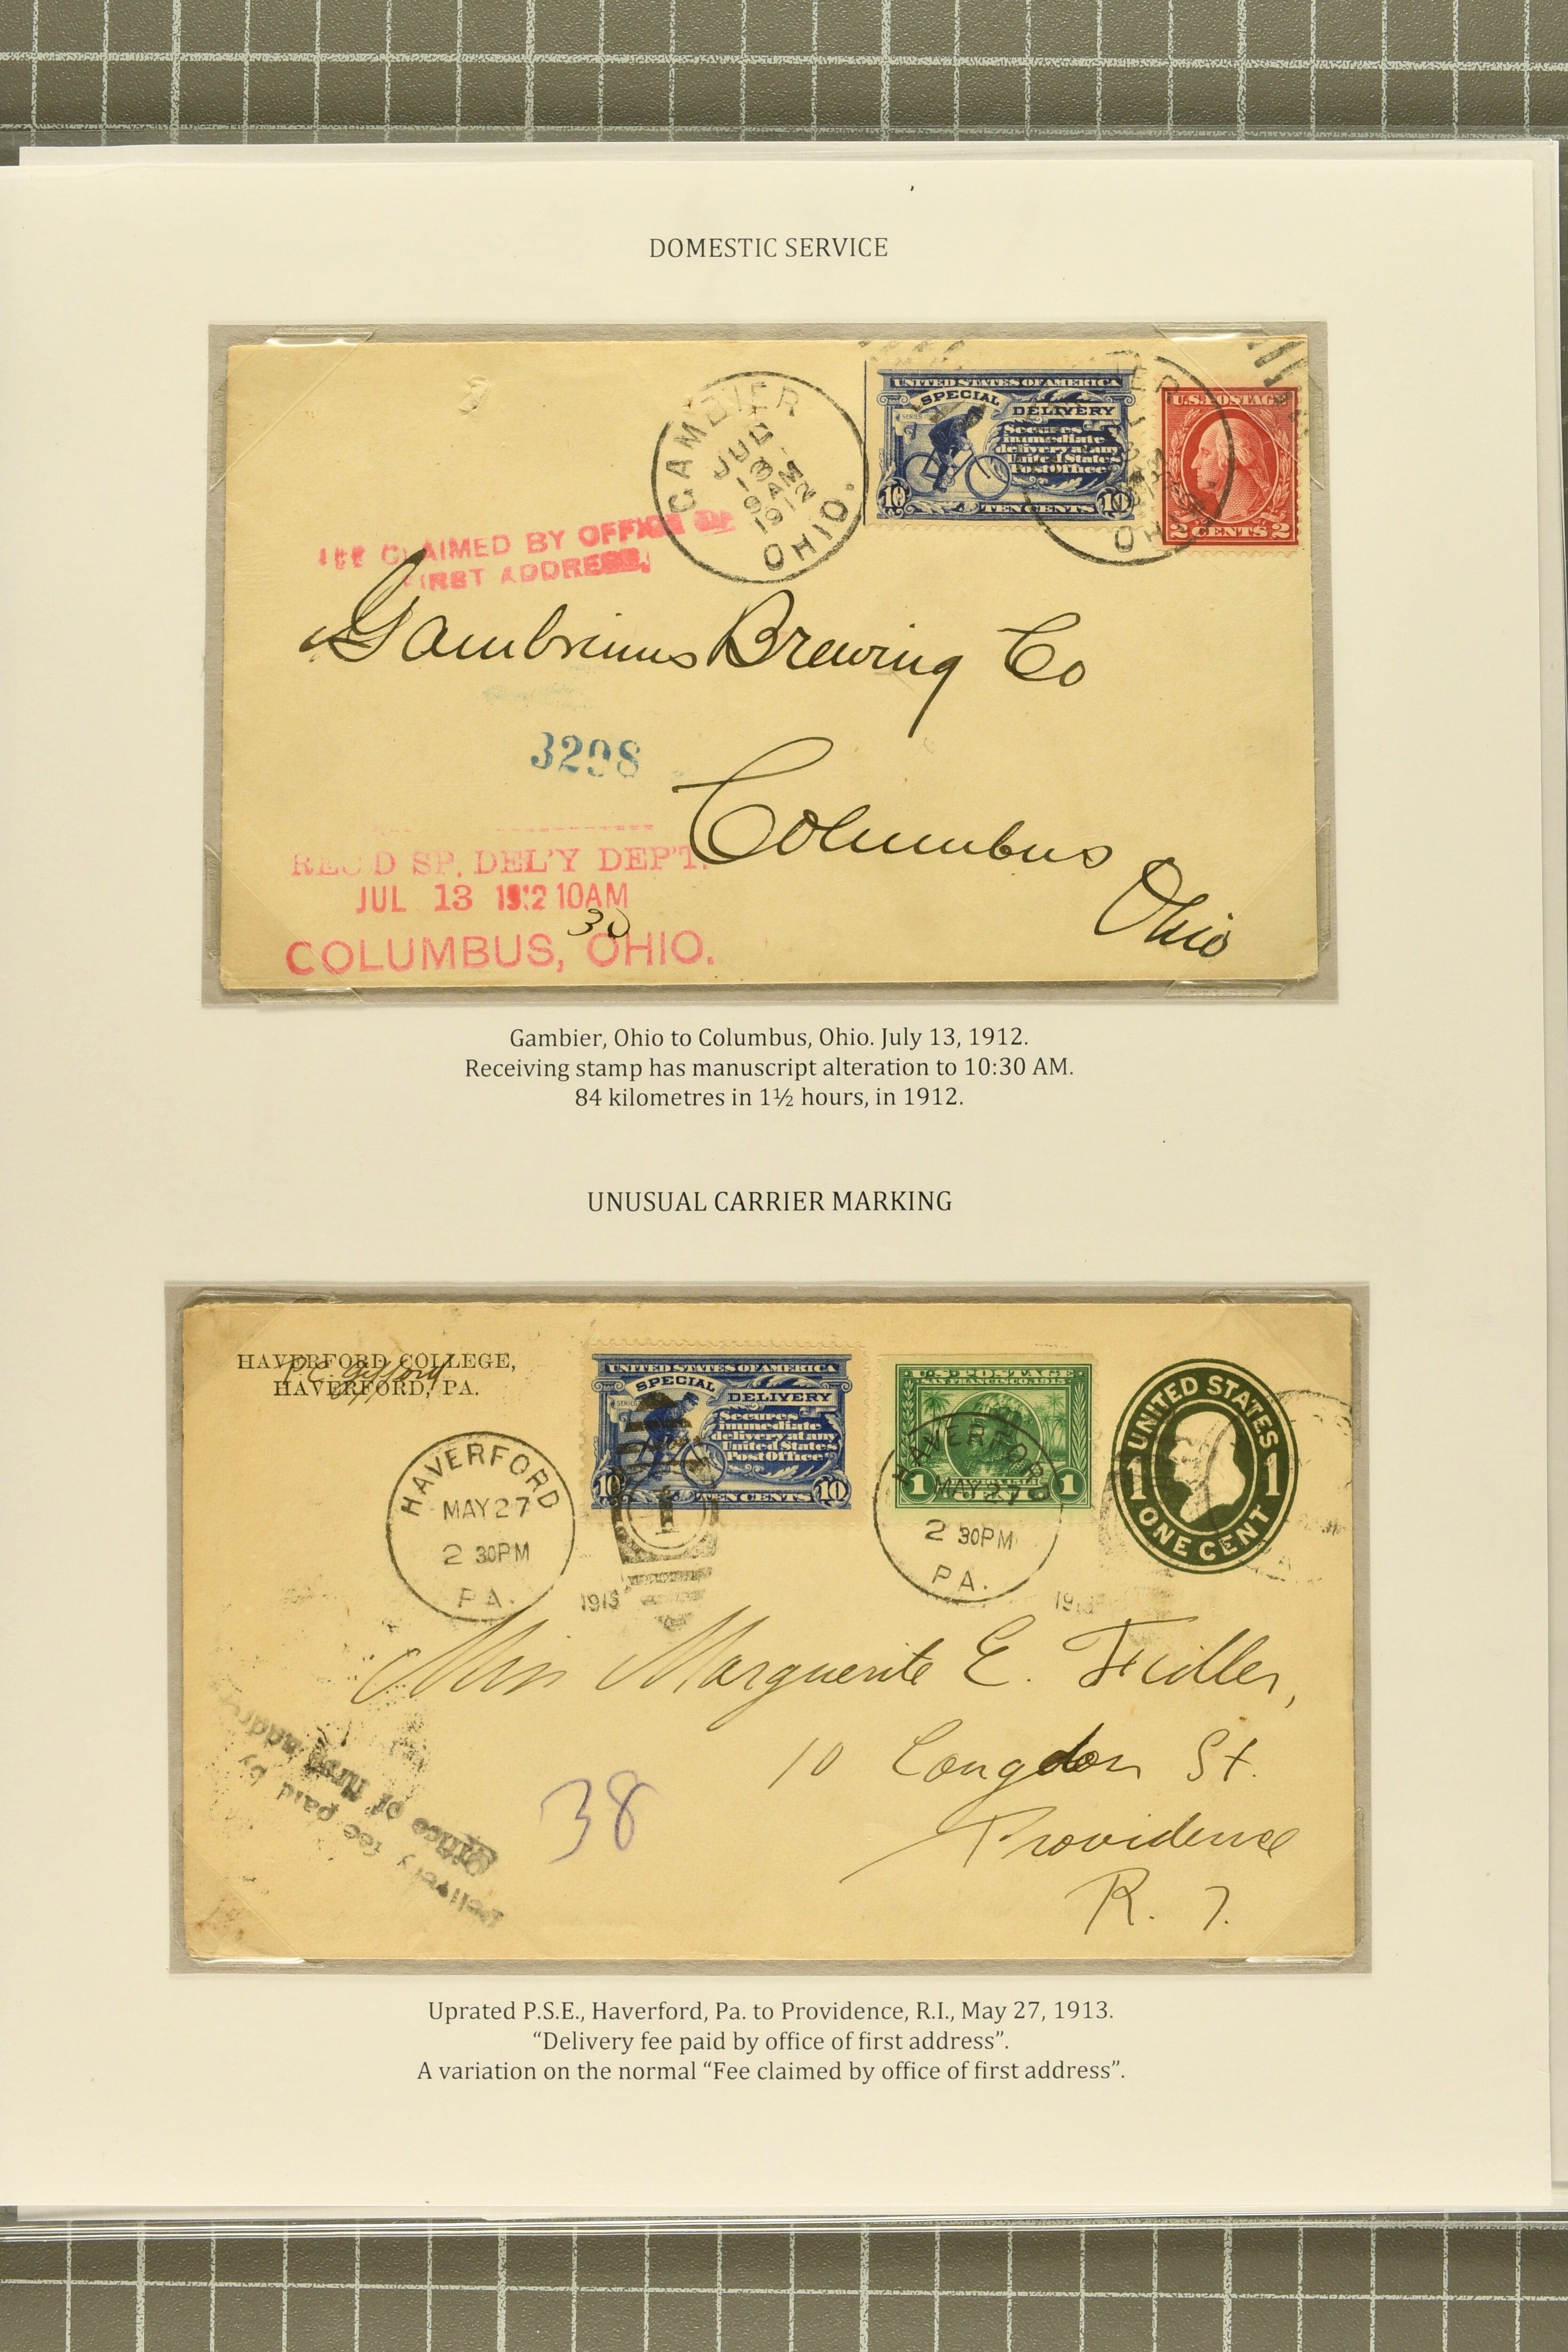 DOMESTIC SERVICE
GAMBIER
JUL
13
9 AM
1912
OHIO.
UNITED STATES OF AMERICA
SPECIAL DELIVERY
Secures
immediate
delivery at any
United States
Post Office
10 TEN CENTS 10
U.S. POSTAGE
2 CENTS 2
FEE CLAIMED BY OFFICE OF
FIRST ADDRESS.
Gambrinus Brewing Co
3298
Columbus
Ohio
REC'D SP. DEL'Y DEP'T.
JUL 13 1912 10AM
30
COLUMBUS, OHIO.
Gambier, Ohio to Columbus, Ohio. July 13, 1912.
Receiving stamp has manuscript alteration to 10:30 AM.
84 kilometres in 1½ hours, in 1912.
UNUSUAL CARRIER MARKING
HAVERFORD COLLEGE,
HAVERFORD, PA.
UNITED STATES OF AMERICA
SPECIAL DELIVERY
Secures
immediate
delivery at any
United States
Post Office
10 TEN CENTS 10
U.S. POSTAGE
SAN FRANCISCO 1915
1 1
UNITED STATES
1 1
ONE CENT
HAVERFORD
MAY 27
2 30PM
PA.
1913
1
HAVERFORD
MAY 27
2 30PM
PA.
Miss Marguerite E. Fidler,
10 Congdon St.
Providence
R. I.
38
Delivery fee paid by
office of first address
Uprated P.S.E., Haverford, Pa. to Providence, R.I., May 27, 1913.
“Delivery fee paid by office of first address”.
A variation on the normal “Fee claimed by office of first address”.